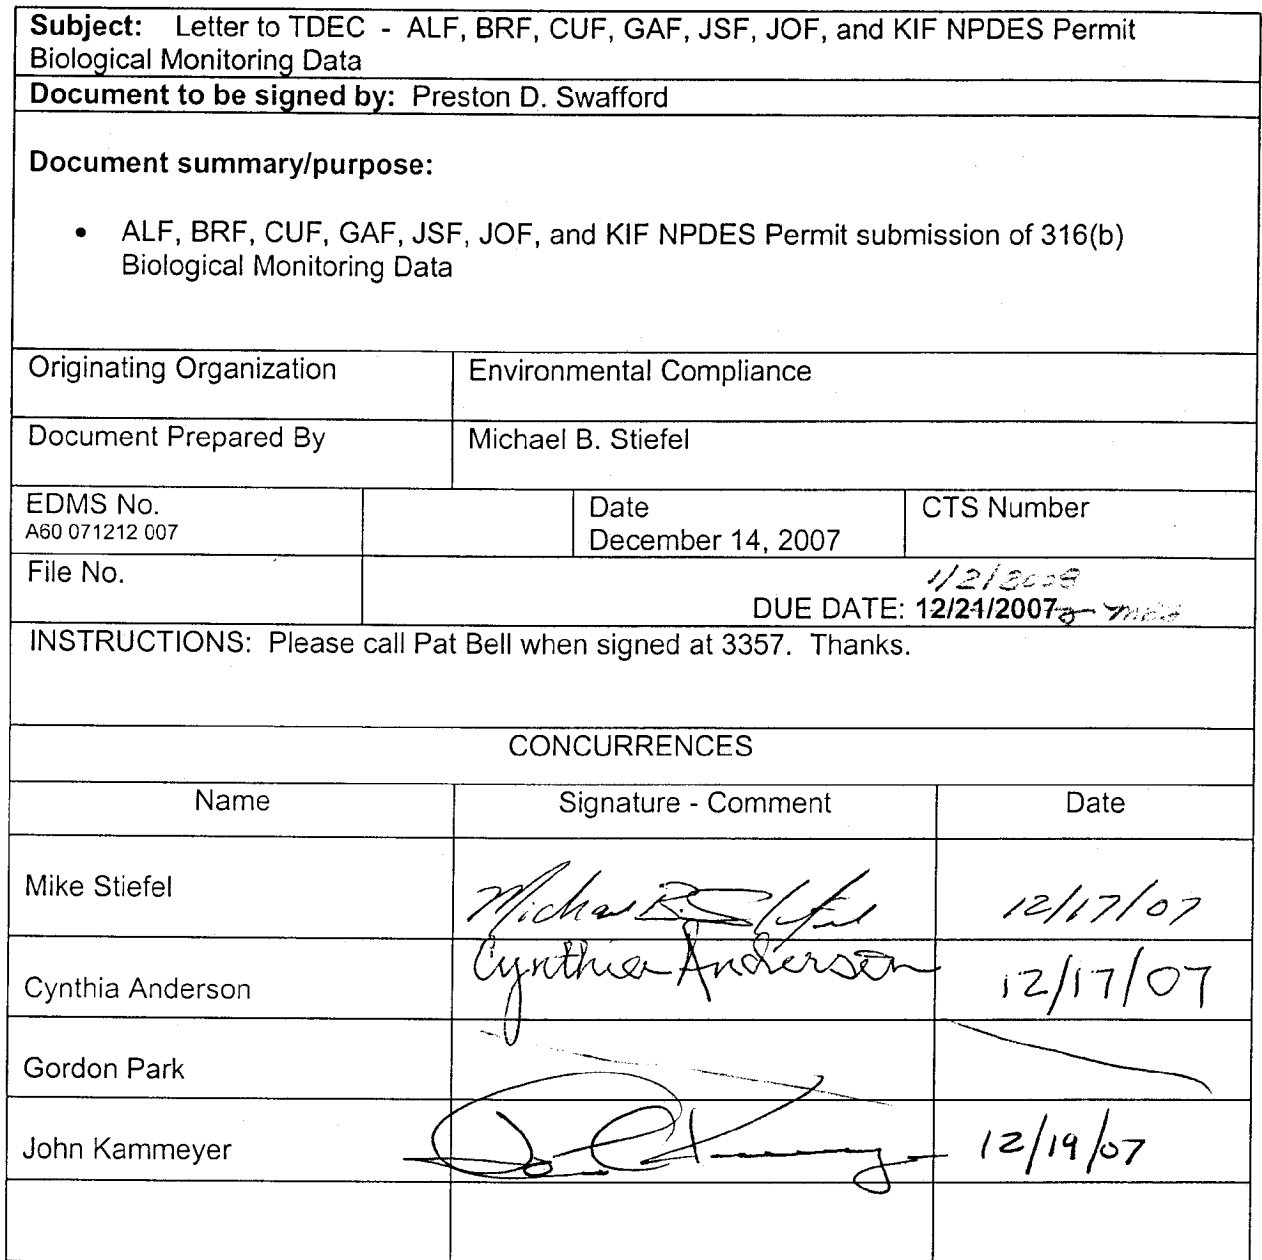 Subject: Letter to TDEC - ALF, BRF, CUF, GAF, JSF, JOF, and KIF NPDES Permit
Biological Monitoring Data
Document to be signed by: Preston D. Swafford
Document summary/purpose:
• ALF, BRF, CUF, GAF, JSF, JOF, and KIF NPDES Permit submission of 316(b)
Biological Monitoring Data
Originating Organization
Environmental Compliance
Document Prepared By
Michael B. Stiefel
EDMS No.
A60 071212 007
Date
December 14, 2007
CTS Number
File No.
1/2/2008
DUE DATE: 12/21/2007
INSTRUCTIONS: Please call Pat Bell when signed at 3357. Thanks.
CONCURRENCES
Name Signature - Comment Date
Mike Stiefel Michael B. Stiefel 12/17/07
Cynthia Anderson Cynthia Anderson 12/17/07
Gordon Park
John Kammeyer 12/19/07